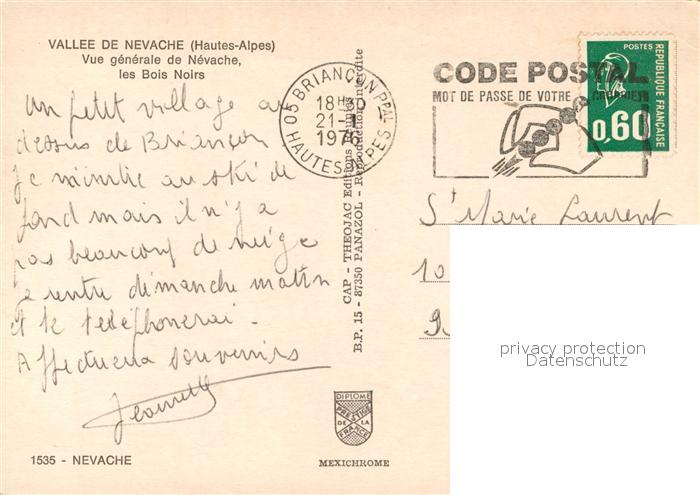 VALLEE DE NEVACHE (Hautes-Alpes)
Vue générale de Névache,
les Bois Noirs
Un petit village au
dessus de Briançon
Je m'initie au ski de
fond mais il n'y a
pas beaucoup de neige
Je rentre dimanche matin
et te téléphonerai -
Affectueux souvenirs
Jeannette
1535 - NEVACHE
05 BRIANÇON PPAL
18H30
21-1
1976
HAUTES-ALPES
CAP - THEOJAC Editions Limoges
B.P. 15 - 87350 PANAZOL - Reproduction interdite
DIPLOME
PRESTIGE
DE LA
FRANCE
MEXICHROME
CODE POSTAL
MOT DE PASSE DE VOTRE COURRIER
POSTES
REPUBLIQUE FRANÇAISE
0,60
St Marie Laurent
10
9
privacy protection
Datenschutz